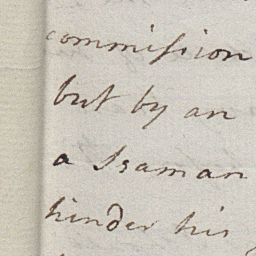 commission
but by an
a Seaman
hinder his